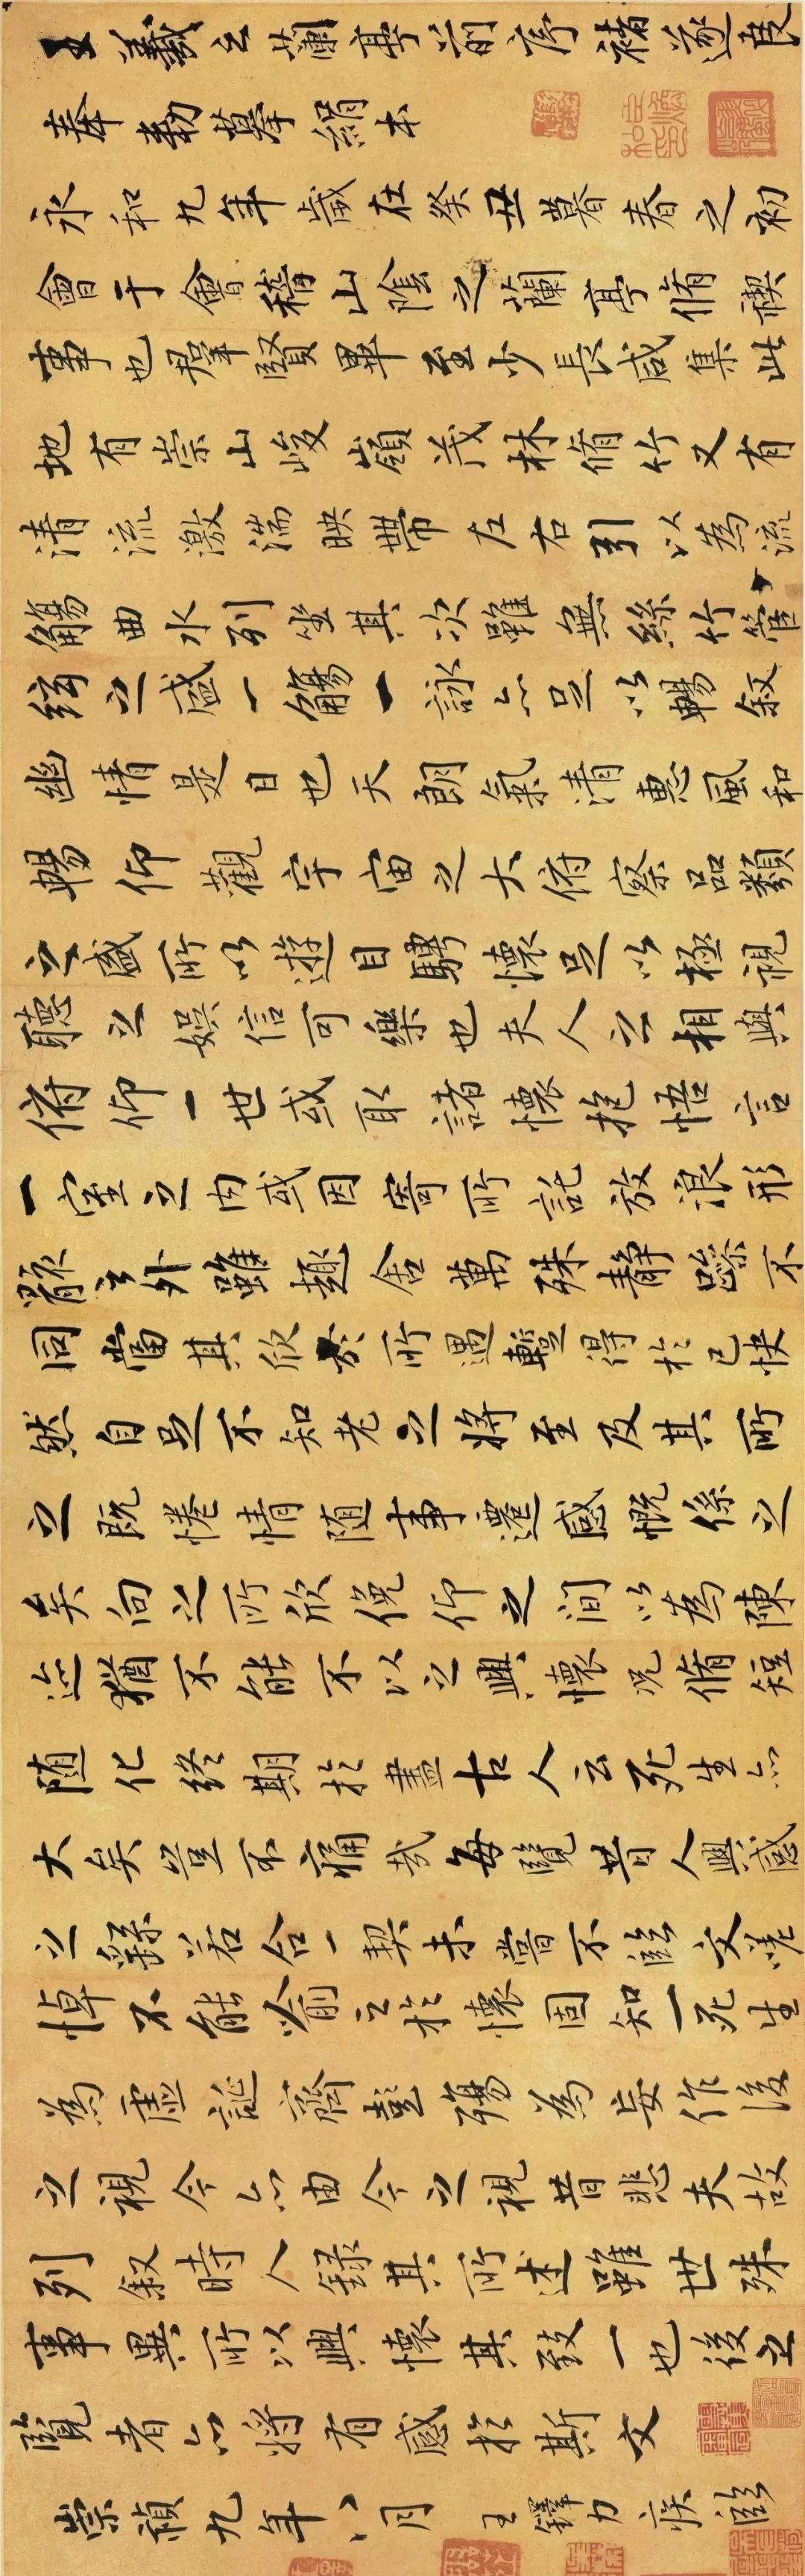 王羲之蘭亭前序褚遂良
奉勅摹絹本
永和九年歲在癸丑暮春之初
會于會稽山陰之蘭亭脩禊
事也羣賢畢至少長咸集此
地有崇山峻嶺茂林脩竹又有
清流激湍映帶左右引以為流
觴曲水列坐其次雖無絲竹管
絃之盛一觴一詠亦足以暢叙
幽情是日也天朗氣清惠風和
暢仰觀宇宙之大俯察品類
之盛所以遊目騁懷足以極視
聽之娛信可樂也夫人之相與
俯仰一世或取諸懷抱悟言
一室之内或因寄所託放浪形
骸之外雖趣舍萬殊静躁不
同當其欣於所遇暫得於己快
然自足不知老之將至及其所
之既惓情随事遷感慨係之
矣向之所欣俛仰之間以為陳
迹猶不能不以之興懷况脩短
随化終期於盡古人云死生亦
大矣豈不痛哉每覽昔人興感
之繇若合一契未嘗不臨文嗟
悼不能喻之於懷固知一死生
為虛誕齊彭殤為妄作後
之視今亦由今之視昔悲夫故
列叙時人録其所述雖世殊
事異所以興懷其致一也後之
覽者亦將有感於斯文
崇禎九年八月 王鐸力疾臨